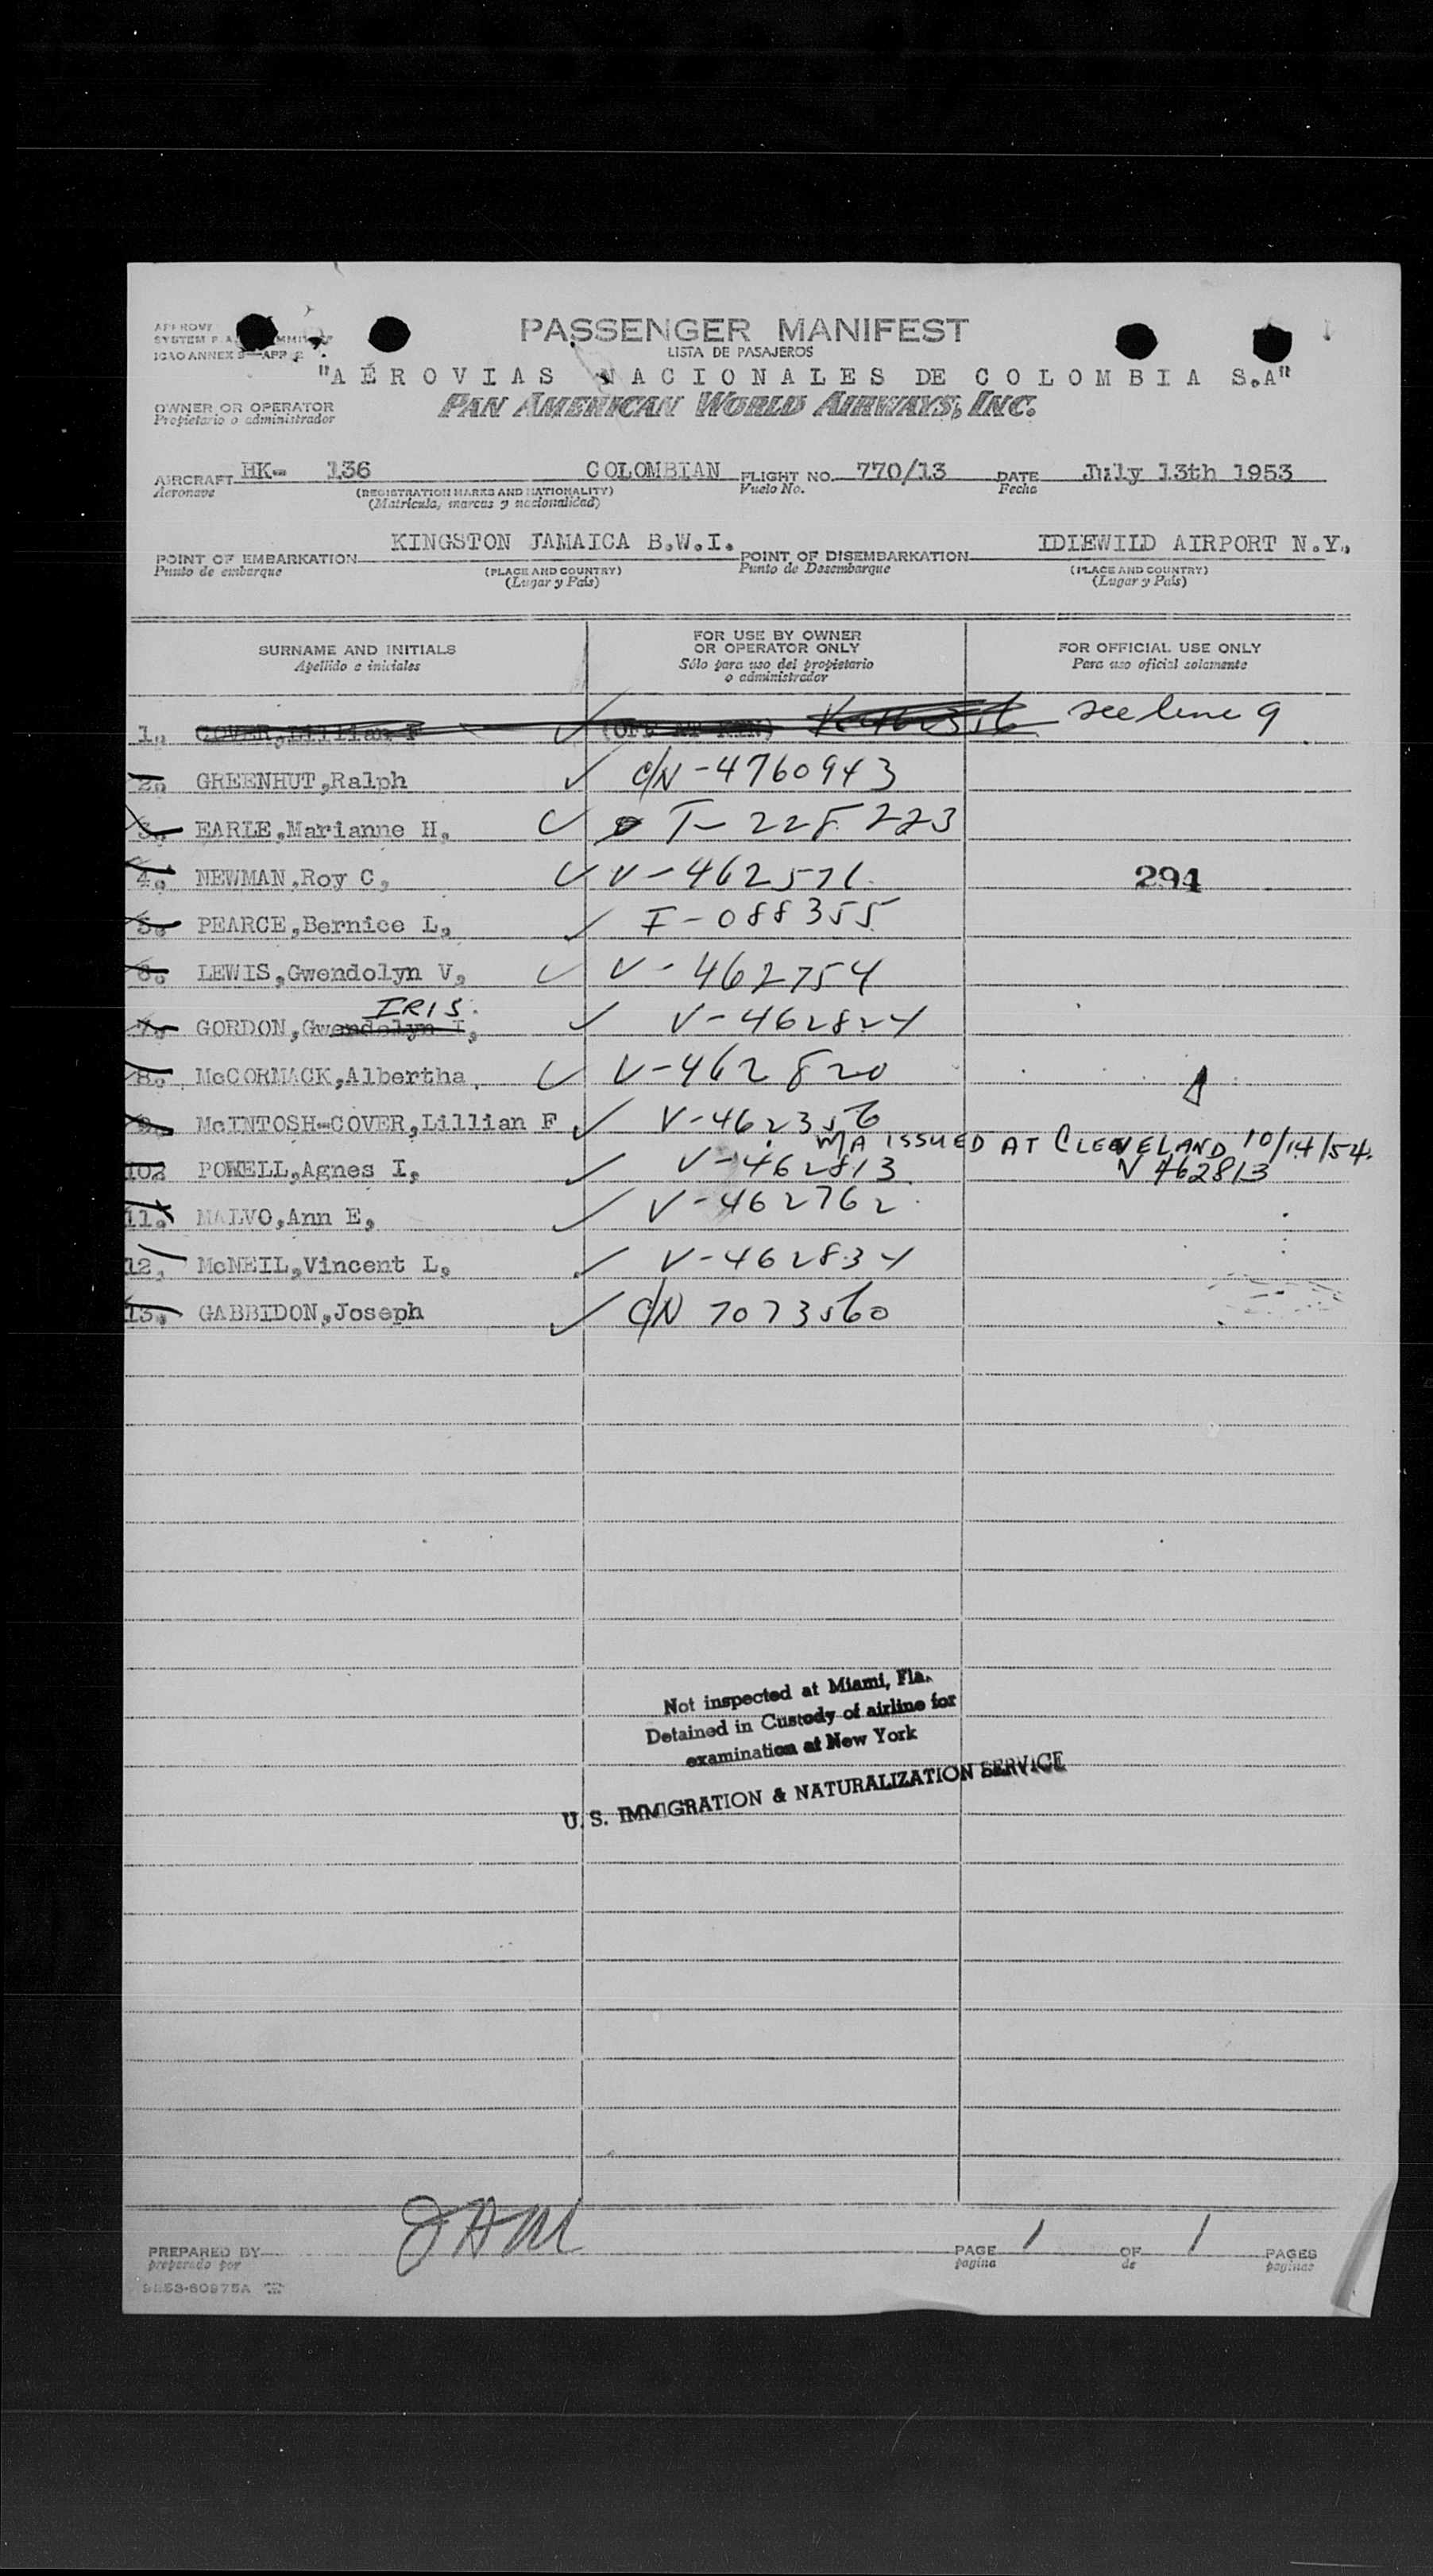 PASSENGER MANIFEST
LISTA DE PASAJEROS
"AÉROVIAS NACIONALES DE COLOMBIA S.A"
OWNER OR OPERATOR
Propietario o administrador
PAN AMERICAN WORLD AIRWAYS, INC.
AIRCRAFT HK- 136 COLOMBIAN FLIGHT NO. 770/13 DATE July 13th 1953
Aeronave (REGISTRATION MARKS AND NATIONALITY) Vuelo No. Fecha
(Matricula, marcas y nacionalidad)
POINT OF EMBARKATION KINGSTON JAMAICA B.W.I. POINT OF DISEMBARKATION IDLEWILD AIRPORT N.Y.,
Punto de embarque (PLACE AND COUNTRY) Punto de Desembarque (PLACE AND COUNTRY)
(Lugar y País) (Lugar y País)
SURNAME AND INITIALS
Apellido e iniciales
FOR USE BY OWNER
OR OPERATOR ONLY
Sólo para uso del propietario
o administrador
FOR OFFICIAL USE ONLY
Para uso oficial solamente
1. COVER, Lillian F V-462356 see line 9
2. GREENHUT, Ralph ✓ C/N-4760943
3. EARLE, Marianne H, ✓ T-228223
4. NEWMAN, Roy C, ✓ V-462571 294
5. PEARCE, Bernice L, ✓ I-088355
6. LEWIS, Gwendolyn V, ✓ V-462754
IRIS.
7. GORDON, Gwendolyn I, ✓ V-462824
8. McCORMACK, Albertha, ✓ V-462820
9. McINTOSH-COVER, Lillian F ✓ V-462356
M/A ISSUED AT CLEVELAND 10/14/54.
10. POWELL, Agnes I, ✓ V-462813 V 462813
11. MALVO, Ann E, ✓ V-462762
12. McNEIL, Vincent L, ✓ V-462834
13. GABBIDON, Joseph ✓ C/N 7073560
Not inspected at Miami, Fla.
Detained in Custody of airline for
examination at New York
U. S. IMMIGRATION & NATURALIZATION SERVICE
PREPARED BY JAM PAGE 1 OF 1 PAGES
preparado por pagina de paginas